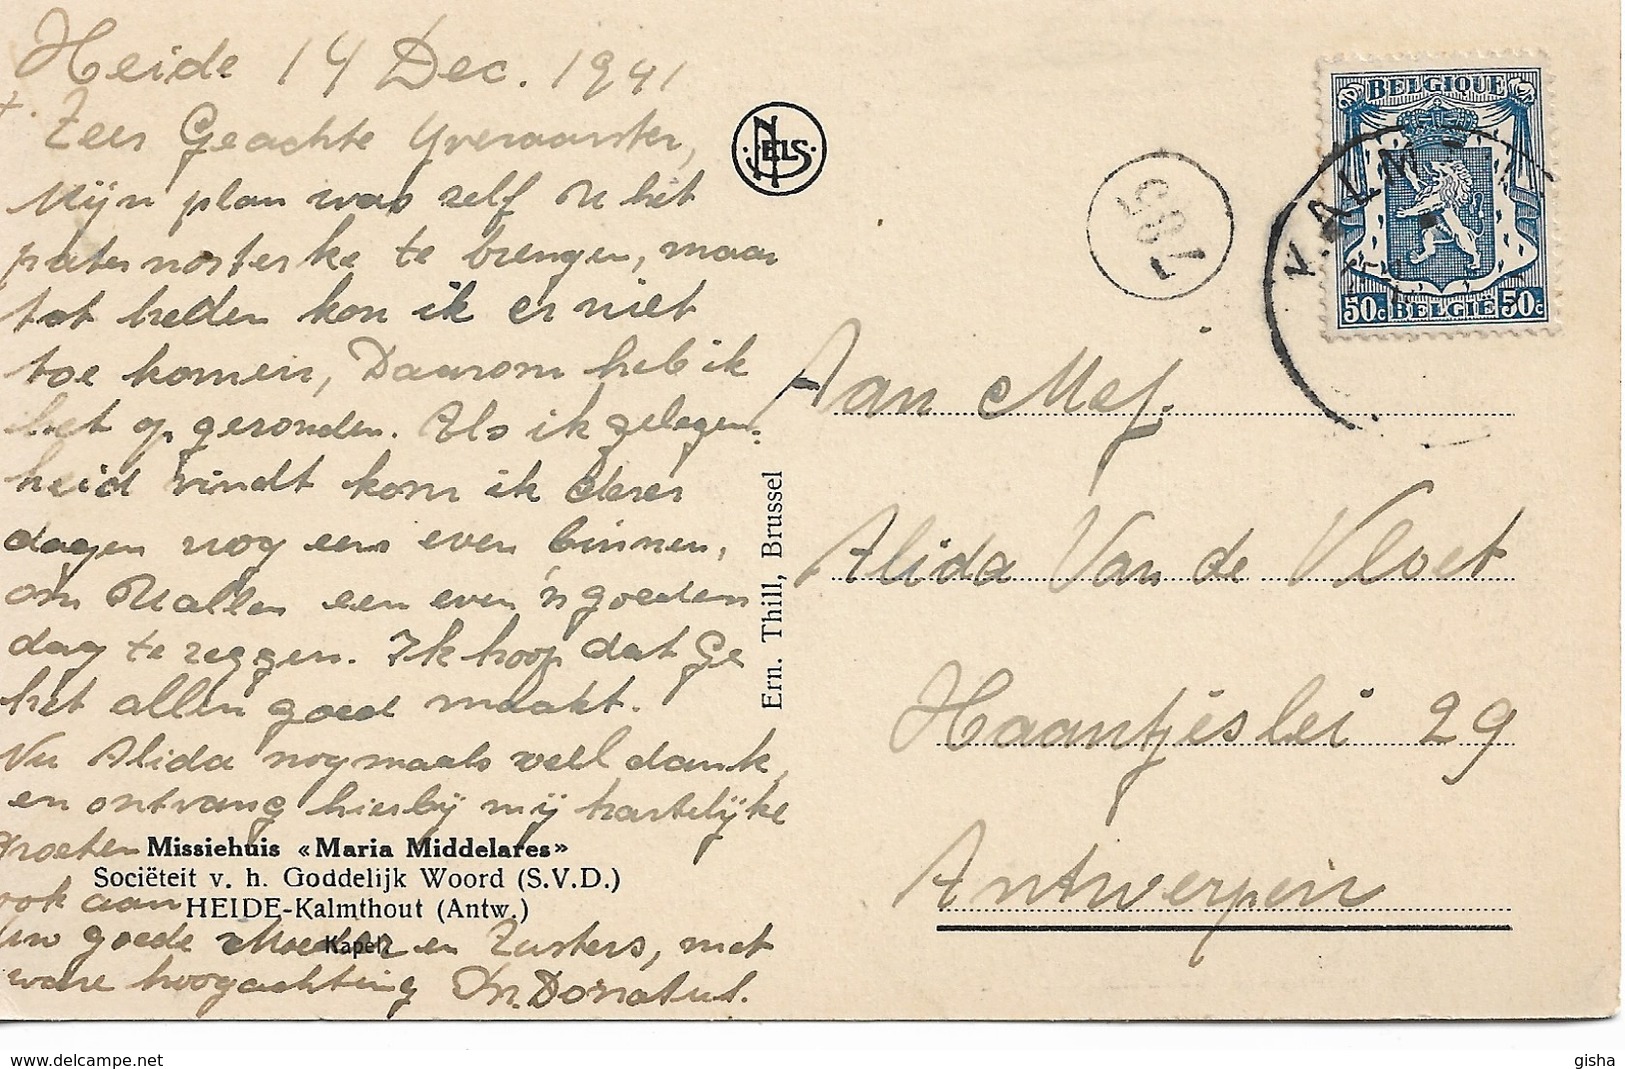 Heide 14 Dec. 1941
Zeer Geachte Yveraarster,
Mijn plan was zelf U het
paternosterke te brengen, maar
tot heden kon ik er niet
toe komen, Daarom heb ik
het opgezonden. Als ik gelegen-
heid vindt kom ik dezer
dagen nog eens even binnen,
om U allen een even 'n goeden
dag te zeggen. Ik hoop dat Ge
het allen goed maakt.
Nu Alida nogmaals veel dank,
en ontvang hierbij mij hartelijke
groeten
ook aan
uw goede Moeder en Zusters, met
ware hoogachting Fr. Donatus.
Missiehuis «Maria Middelares»
Sociëteit v. h. Goddelijk Woord (S.V.D.)
HEIDE-Kalmthout (Antw.)
Kapel
NELS
Ern. Thill, Brussel
BELGIQUE
50c BELGIE 50c
Aan Mej.
Alida Van de Vloet
Haantjeslei 29
Antwerpen
www.delcampe.net
gisha